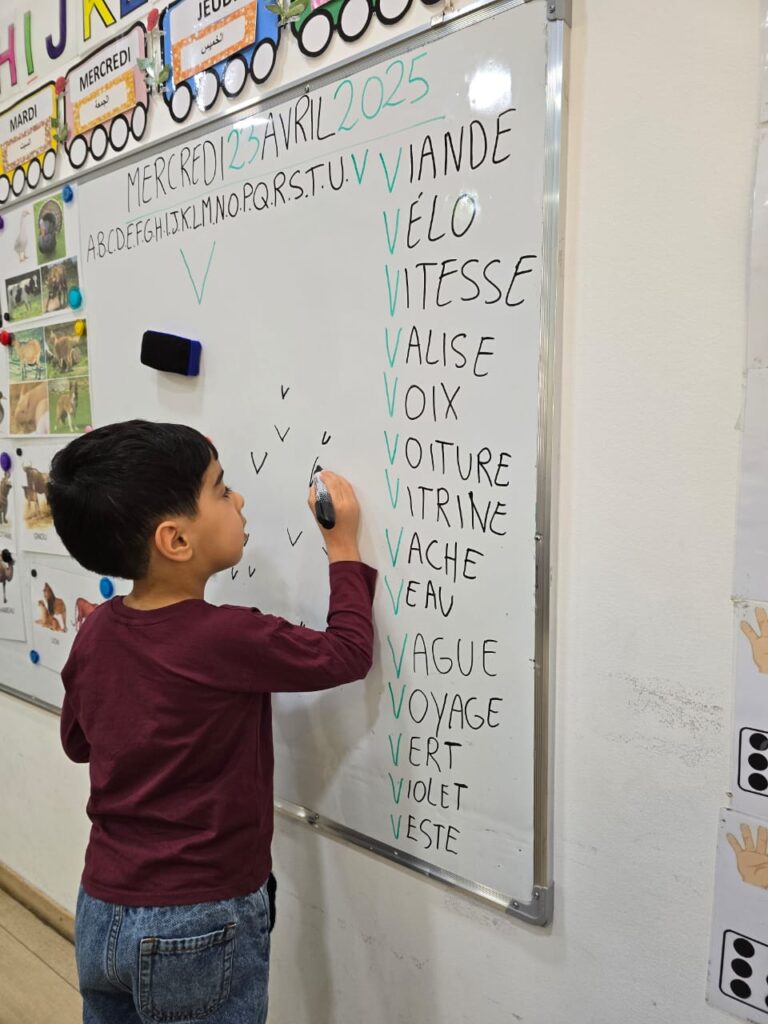 HIJK
JEUDI
الخميس
MERCREDI
الجمعة
MARDI
السبت
MERCREDI 23 AVRIL 2025
A.B.C.D.E.F.G.H.I.J.K.L.M.N.O.P.Q.R.S.T.U.V
V
VIANDE
VÉLO
VITESSE
VALISE
VOIX
VOITURE
VITRINE
VACHE
VEAU
VAGUE
VOYAGE
VERT
VIOLET
VESTE
V
V
V
V
V
V
V